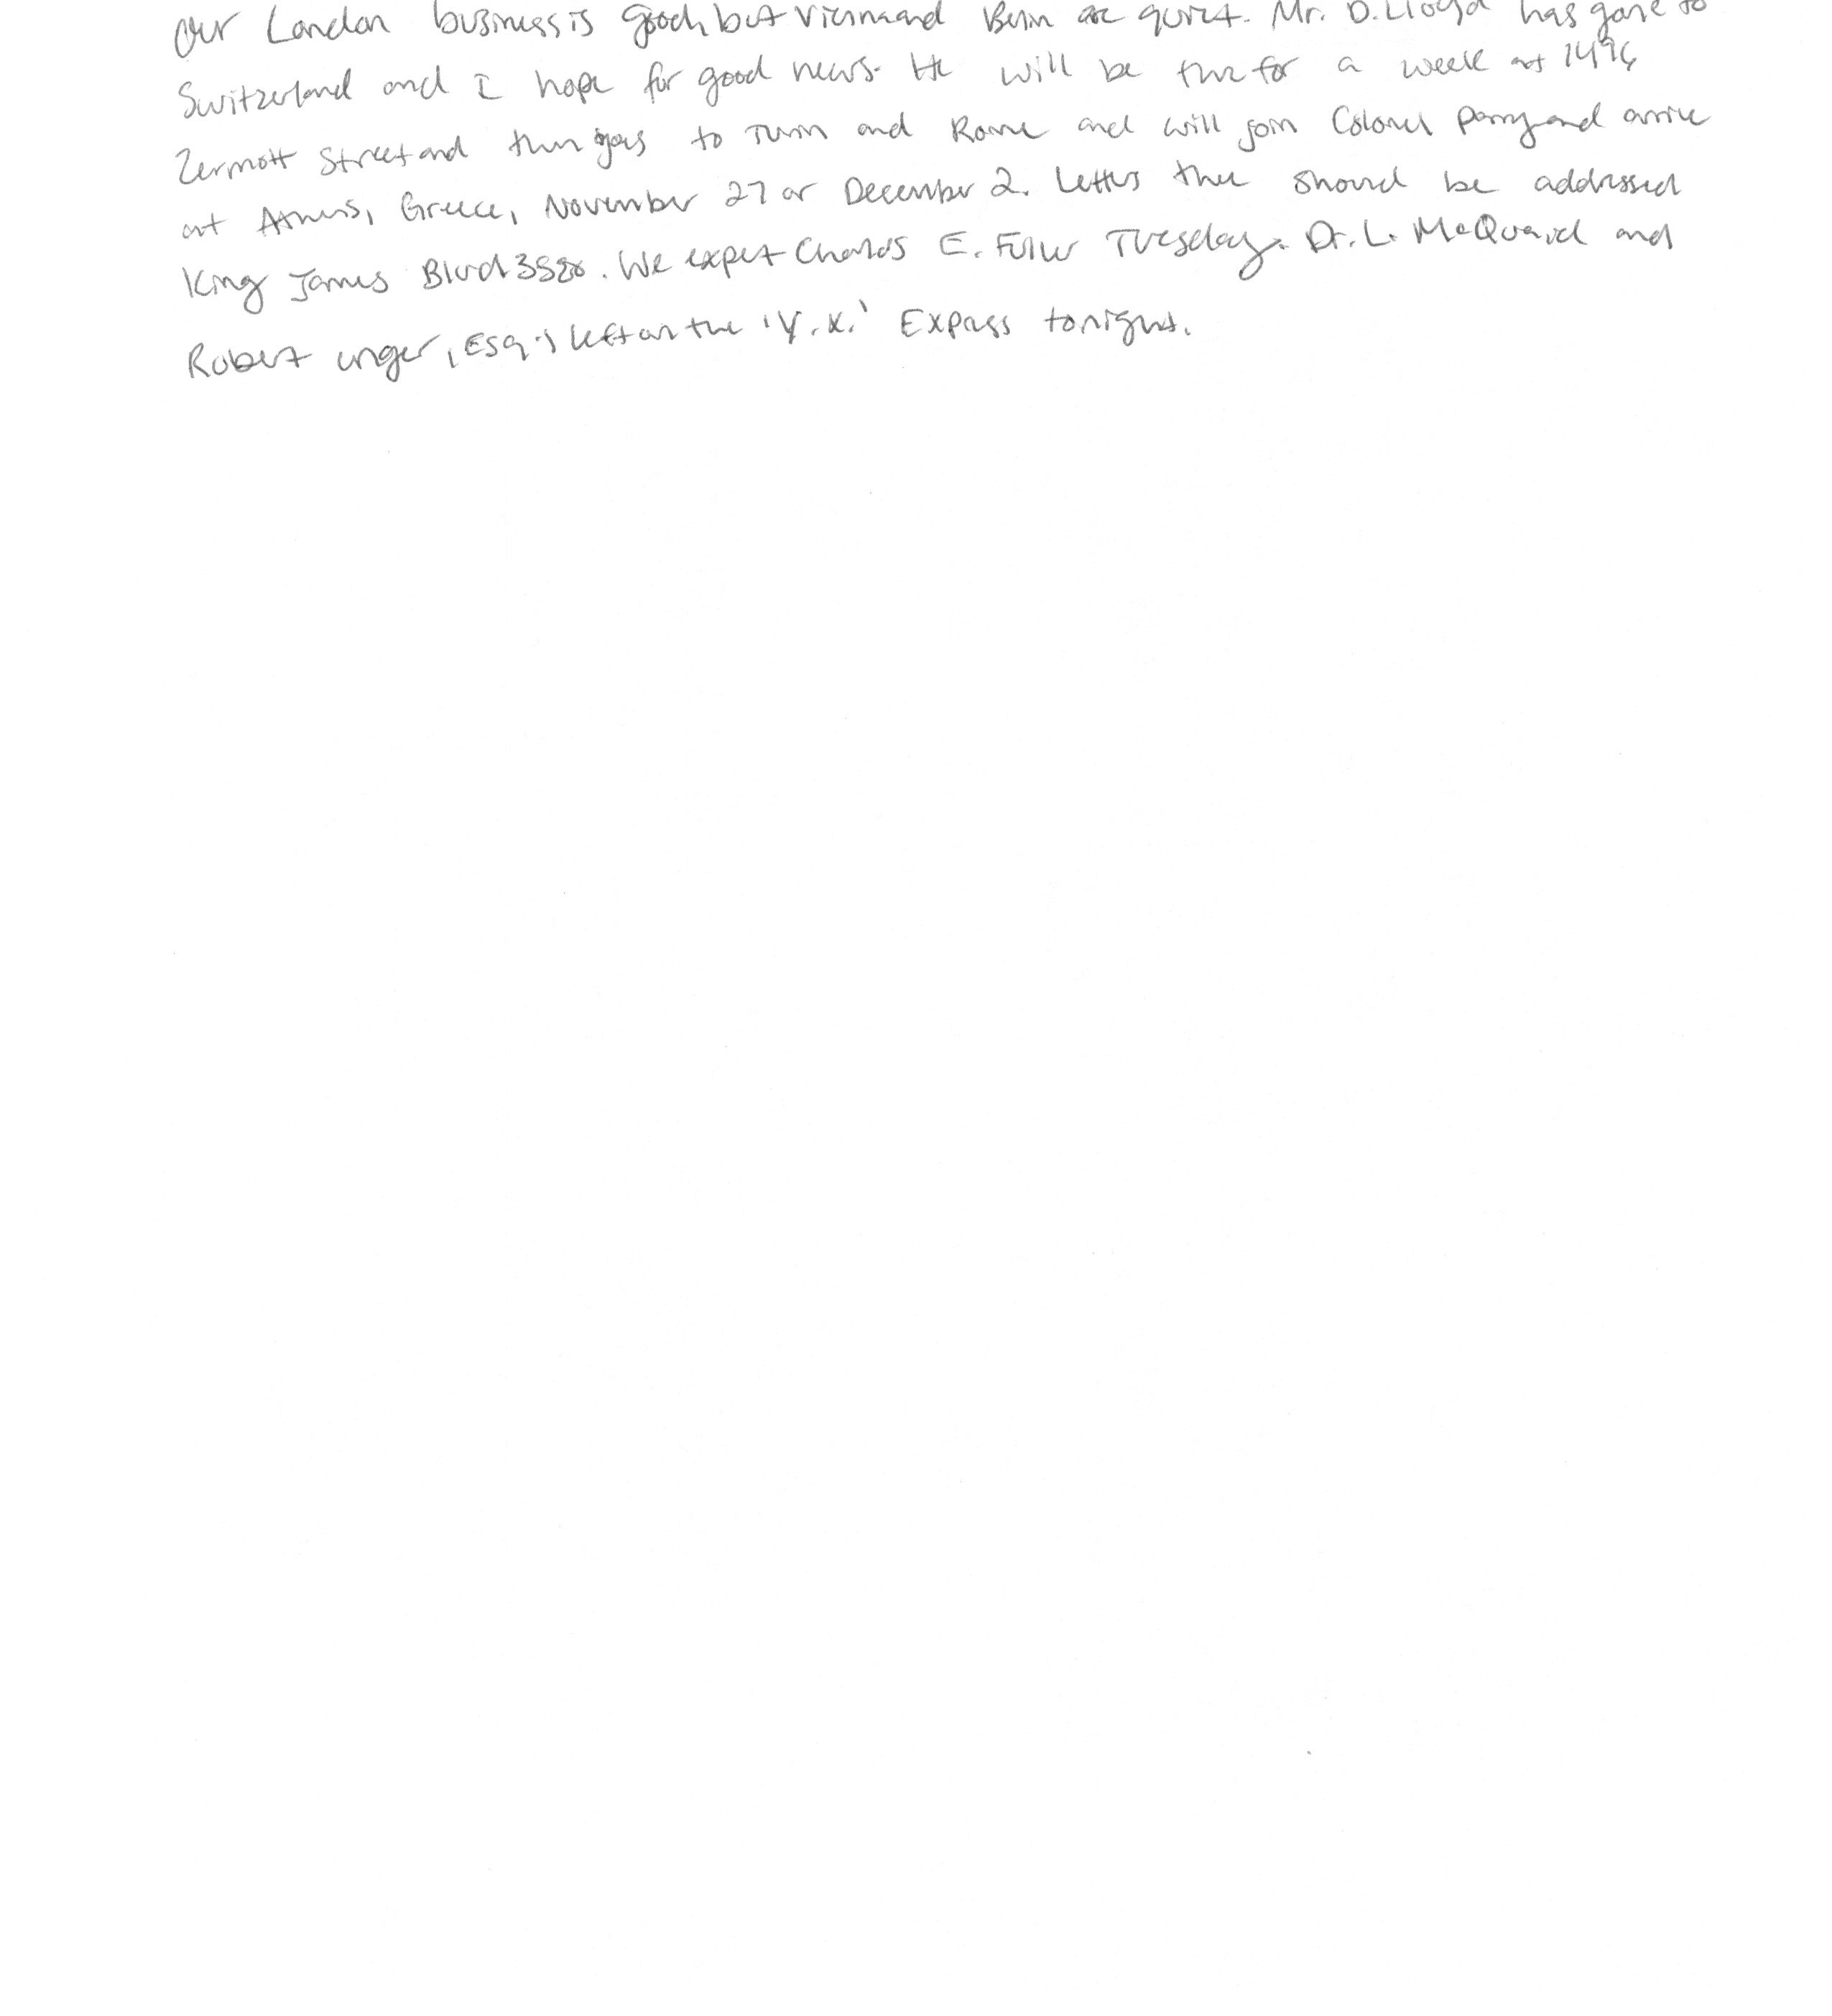 Our London business is good, but Vienna and Berlin are quiet. Mr. D. Lloyd has gone to
Switzerland and I hope for good news. He will be there for a week at 1496
Zermott Street and then goes to Turin and Rome and will join Colonel Parry and arrive
at Athens, Greece, November 27 or December 2. Letters there should be addressed
King James Blvd 3580. We expect Charles E. Fuller Tuesday. Dr. L. McQuaid and
Robert Unger, Esq., left on the 'Y.X.' Express tonight.